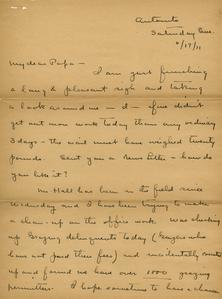 Antonito
Saturday Eve.
6/17/11
My dear Papa –
I am just finishing
a long & pleasant sigh and taking
a look around me – if I didn't
get out more work today than any ordinary
3 days – the mail must have weighed twenty
pounds. Sent you a News Letter – how do
you like it?
Mr Hall has been in the field since
Wednesday and I have been trying to make
a clean-up on the office work. Was checking
up Grazing delinquents today (Grazers who
have not paid their fees) and incidentally counted
up and found we have over 1500 grazing
permittees. I hope sometime to have a clean